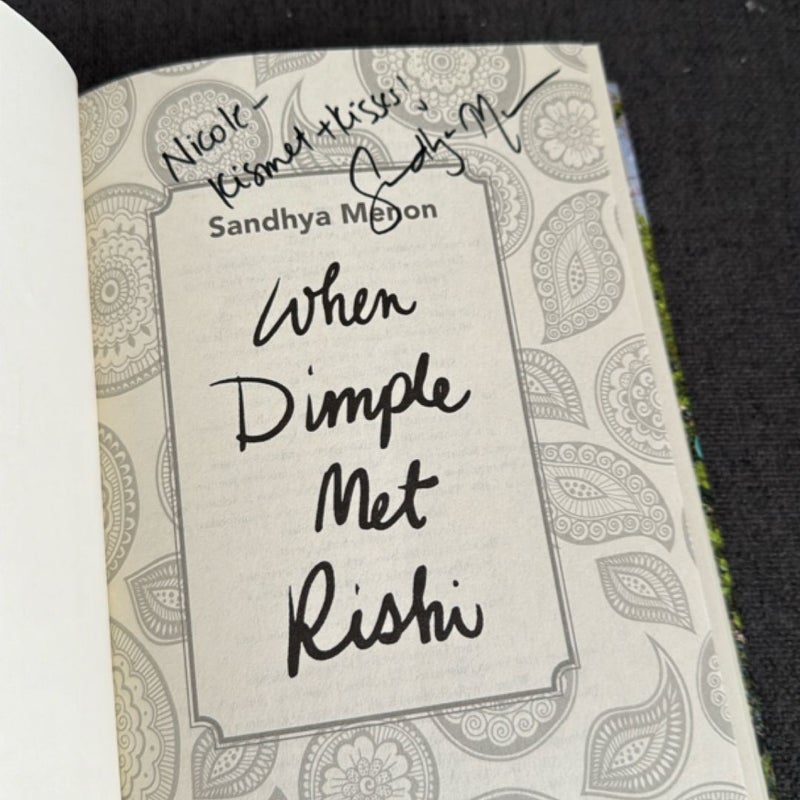 Nicole-
Kismet + Kisses!
Sandhya Menon
Sandhya Menon
When
Dimple
Met
Rishi